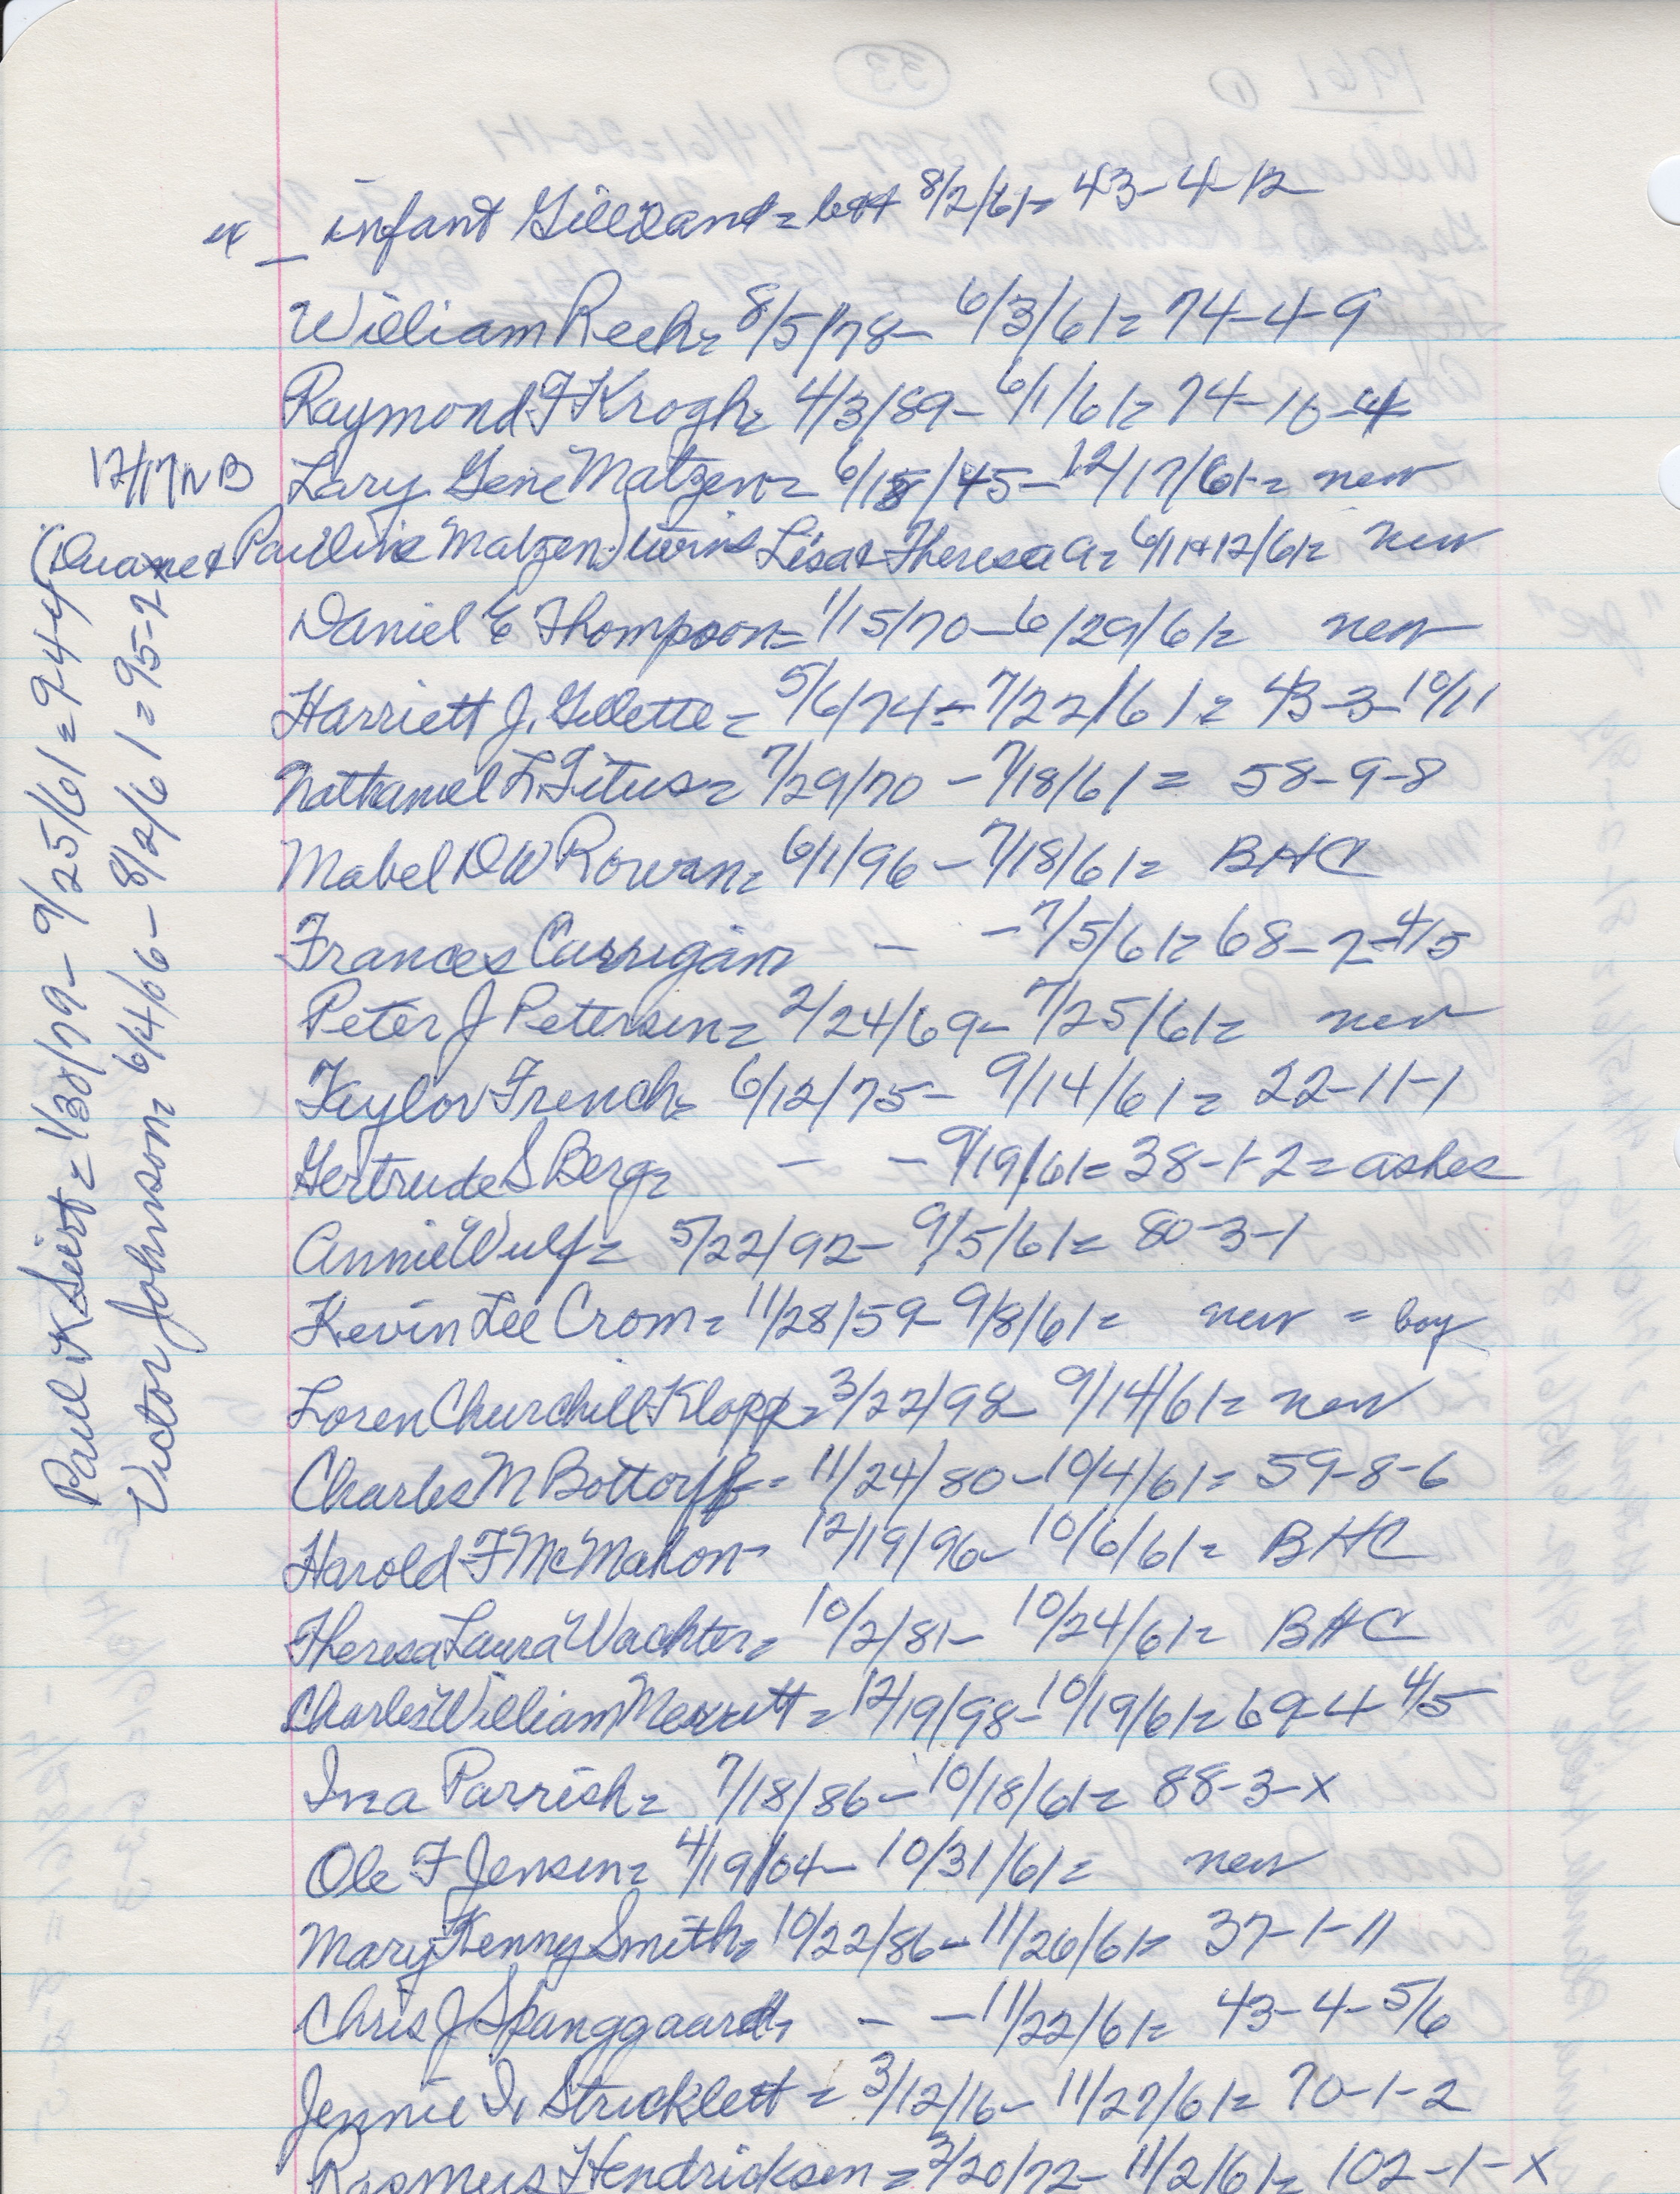 infant Gilldant = 8/2/61= 43-4-12
William Reeh= 8/5/78- 6/3/61= 74-4-9
Raymond F Krogh= 4/3/89- 6/1/61= 74-10-4
12/17 NB Lary Gene Matzen= 6/18/45- 12/17/61= new
(Duane & Pauline Matzen) twins Lisa & Theresa A= 6/11+12/61= new
Daniel E Thompson= 1/15/70-6/29/61= new
Harriett J. Gillette= 5/6/74= 7/22/61= 43-3-10/11
Nathaniel L. Titus= 7/29/70 - 7/18/61= 58-9-8
Mabel DW Rowan= 6/1/96 - 7/18/61= BHC
Frances Carrigan - - 7/5/61= 68-2-4/5
Peter J Petersen= 2/24/69- 7/25/61= new
French= 6/12/75- 9/14/61= 22-11-1
Gertrude S Berg= - - 9/19/61= 38-1-2= ashes
Annie Wulf= 5/22/92- 9/5/61= 80-3-1
Kevin Lee Crom= 11/28/59- 9/8/61= new = boy
Loren Churchill Klopp= 3/22/98- 9/14/61= new
Charles M Bottorff= 11/24/80-10/4/61= 59-8-6
Harold F McMahon- 12/19/96- 10/6/61= BHC
Theresa Laura Wachter= 10/2/81- 10/24/61= BHC
Charles William Merritt= 12/19/98-10/19/61= 69-4 4/5
Ina Parrish= 7/18/86-10/18/61= 88-3-X
Ole F Jensen= 4/19/04- 10/31/61= new
Mary Kenny Smith= 10/22/86- 11/26/61= 37-1-11
Chris J Spanggaard= - - 11/22/61= 43-4-5/6
Jennie I. Stricklett= 3/12/16- 11/27/61= 70-1-2
Rasmus Hendricksen= 3/20/72- 11/2/61= 102-1-X
Paul K Siert= 1/30/79- 9/25/61= 94-4
Victor Johnson= 6/4/66- 8/2/61= 95-2